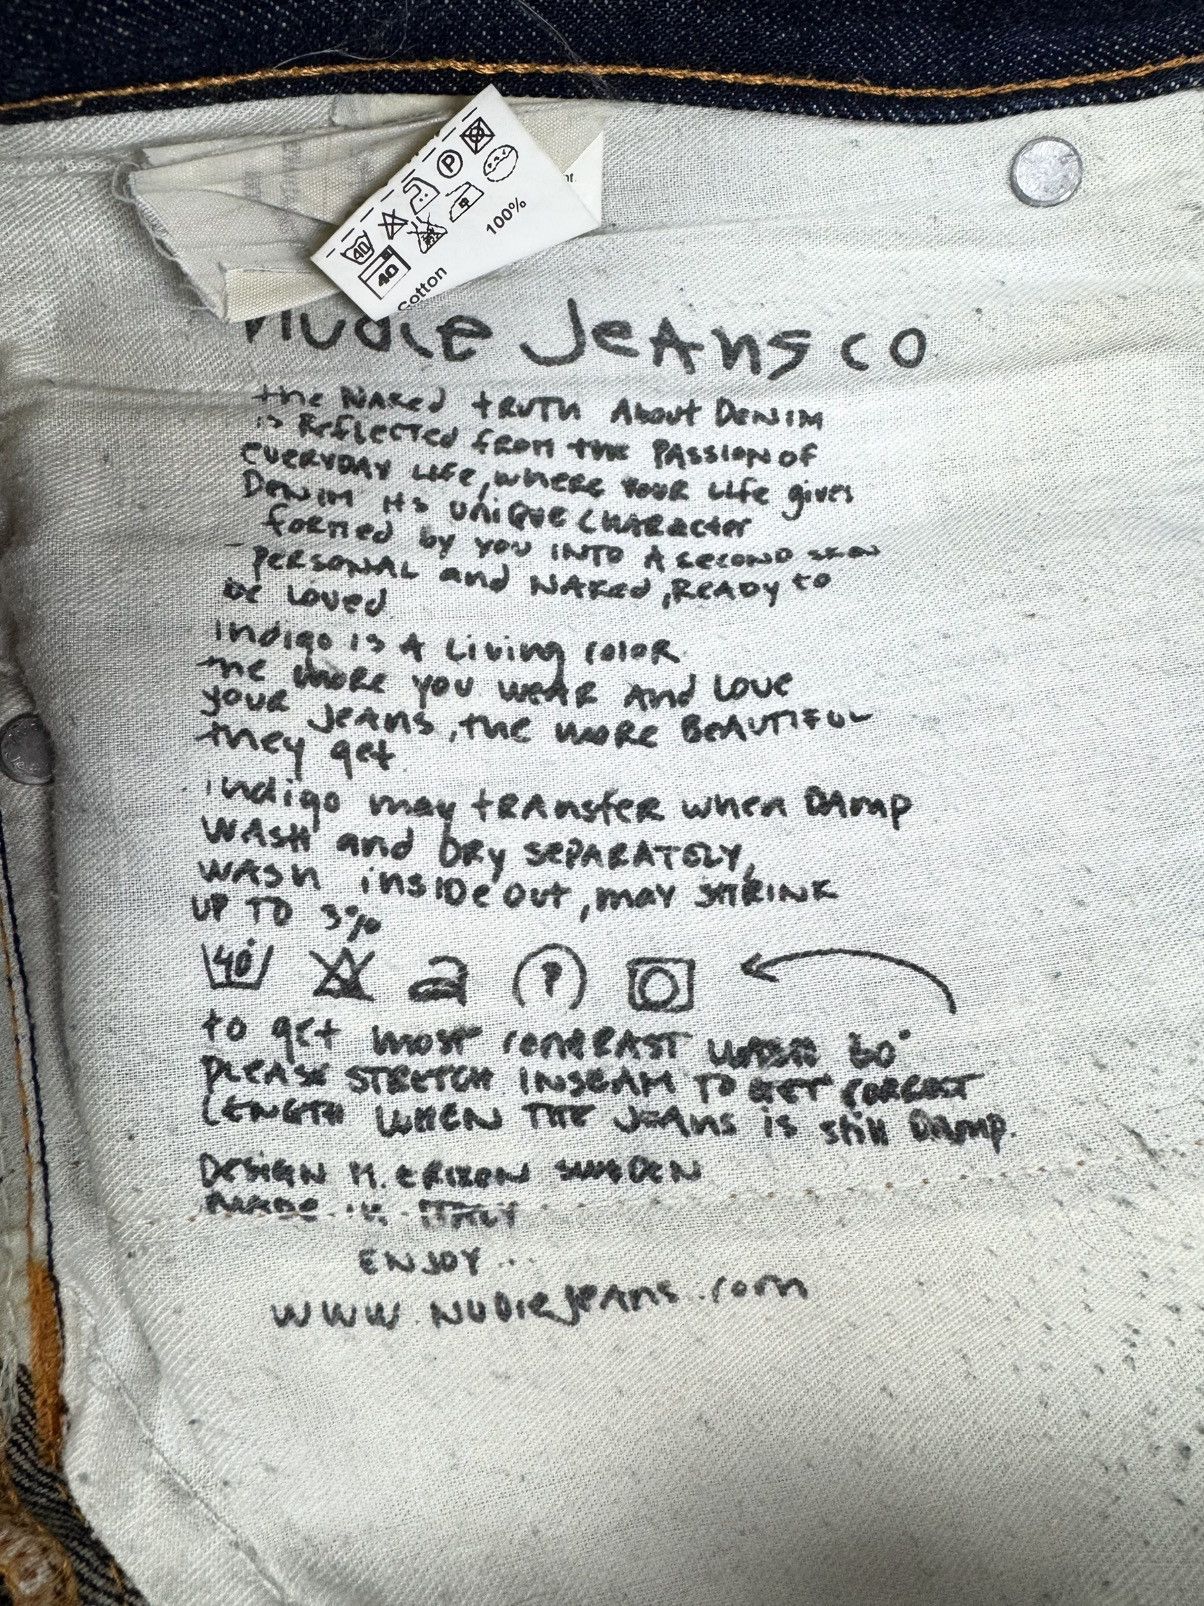 40
P
40
100%
cotton
nudie Jeans co
the NAKed tRUTH About DENIM
is Reflected from the PASSION OF
everyday life, where your life gives
Denim its unique character
formed by you into a second skin
- personal and naked, ready to
be loved
indigo is a living color
the more you wear and love
your jeans, the more beautiful
they get
indigo may transfer when damp
wash and dry separately,
wash inside out, may shrink
up to 3%
40° P
to get most contrast wash 60°
please stretch inseam to get correct
length when the jeans is still damp.
Design M. Erixon Sweden
made in Italy
enjoy...
www.nudiejeans.com